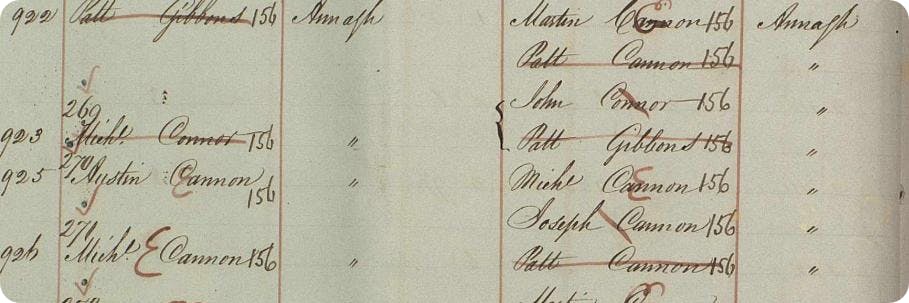 922 Patt Gibbons 156 Annagh Martin Cannon 156 Annagh
Patt Cannon 156 "
269 John Connor 156 "
923 Michl. Connor 156 " Patt Gibbons 156 "
270
925 Aystin Cannon 156 " Michl Cannon 156 "
Joseph Cannon 156 "
271
926 Michl. Cannon 156 " Patt Cannon 156 "